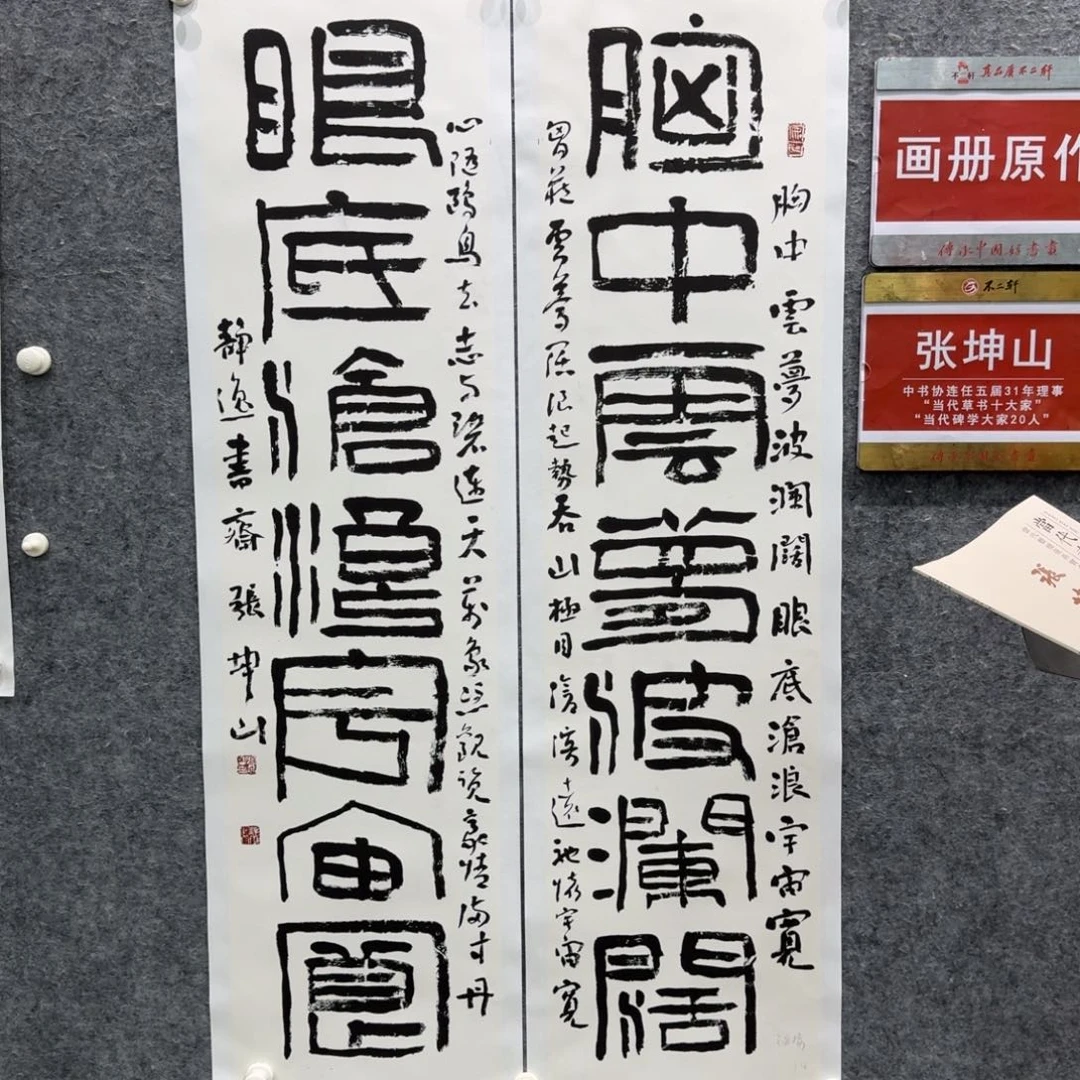 胸中雲夢波瀾闊
胸中雲夢波瀾闊眼底滄浪宇宙寬
雲夢 浪起勢吞山極目滄溟遠 懷宇宙寬
眼底滄浪宇宙寬
心隨鷗鳥去志与碧連天萬象恣觀覽豪情 寸丹
靜逸書齋張坤山
不二轩 真品质不二轩
画册原作
傳承中国好書畫
不二轩
张坤山
中书协连任五届31年理事
“当代草书十大家”
“当代碑学大家20人”